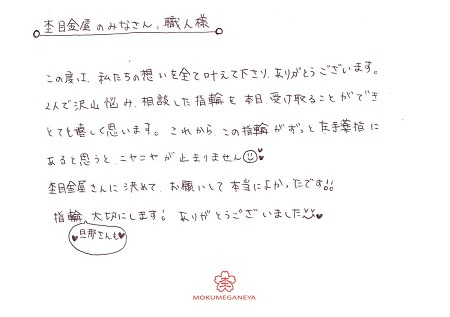 杢目金屋のみなさん, 職人様
この度は、私たちの想いを全て叶えて下さり、ありがとうございます。
2人で沢山悩み、相談した指輪を本日受け取ることができ
とても嬉しく思います。これからこの指輪がずっと左手薬指に
あると思うと、ニヤニヤが止まりません
杢目金屋さんに決めて、お願いして本当によかったです!!
指輪、大切にします! ありがとうございました
旦那さんも
MOKUMEGANEYA